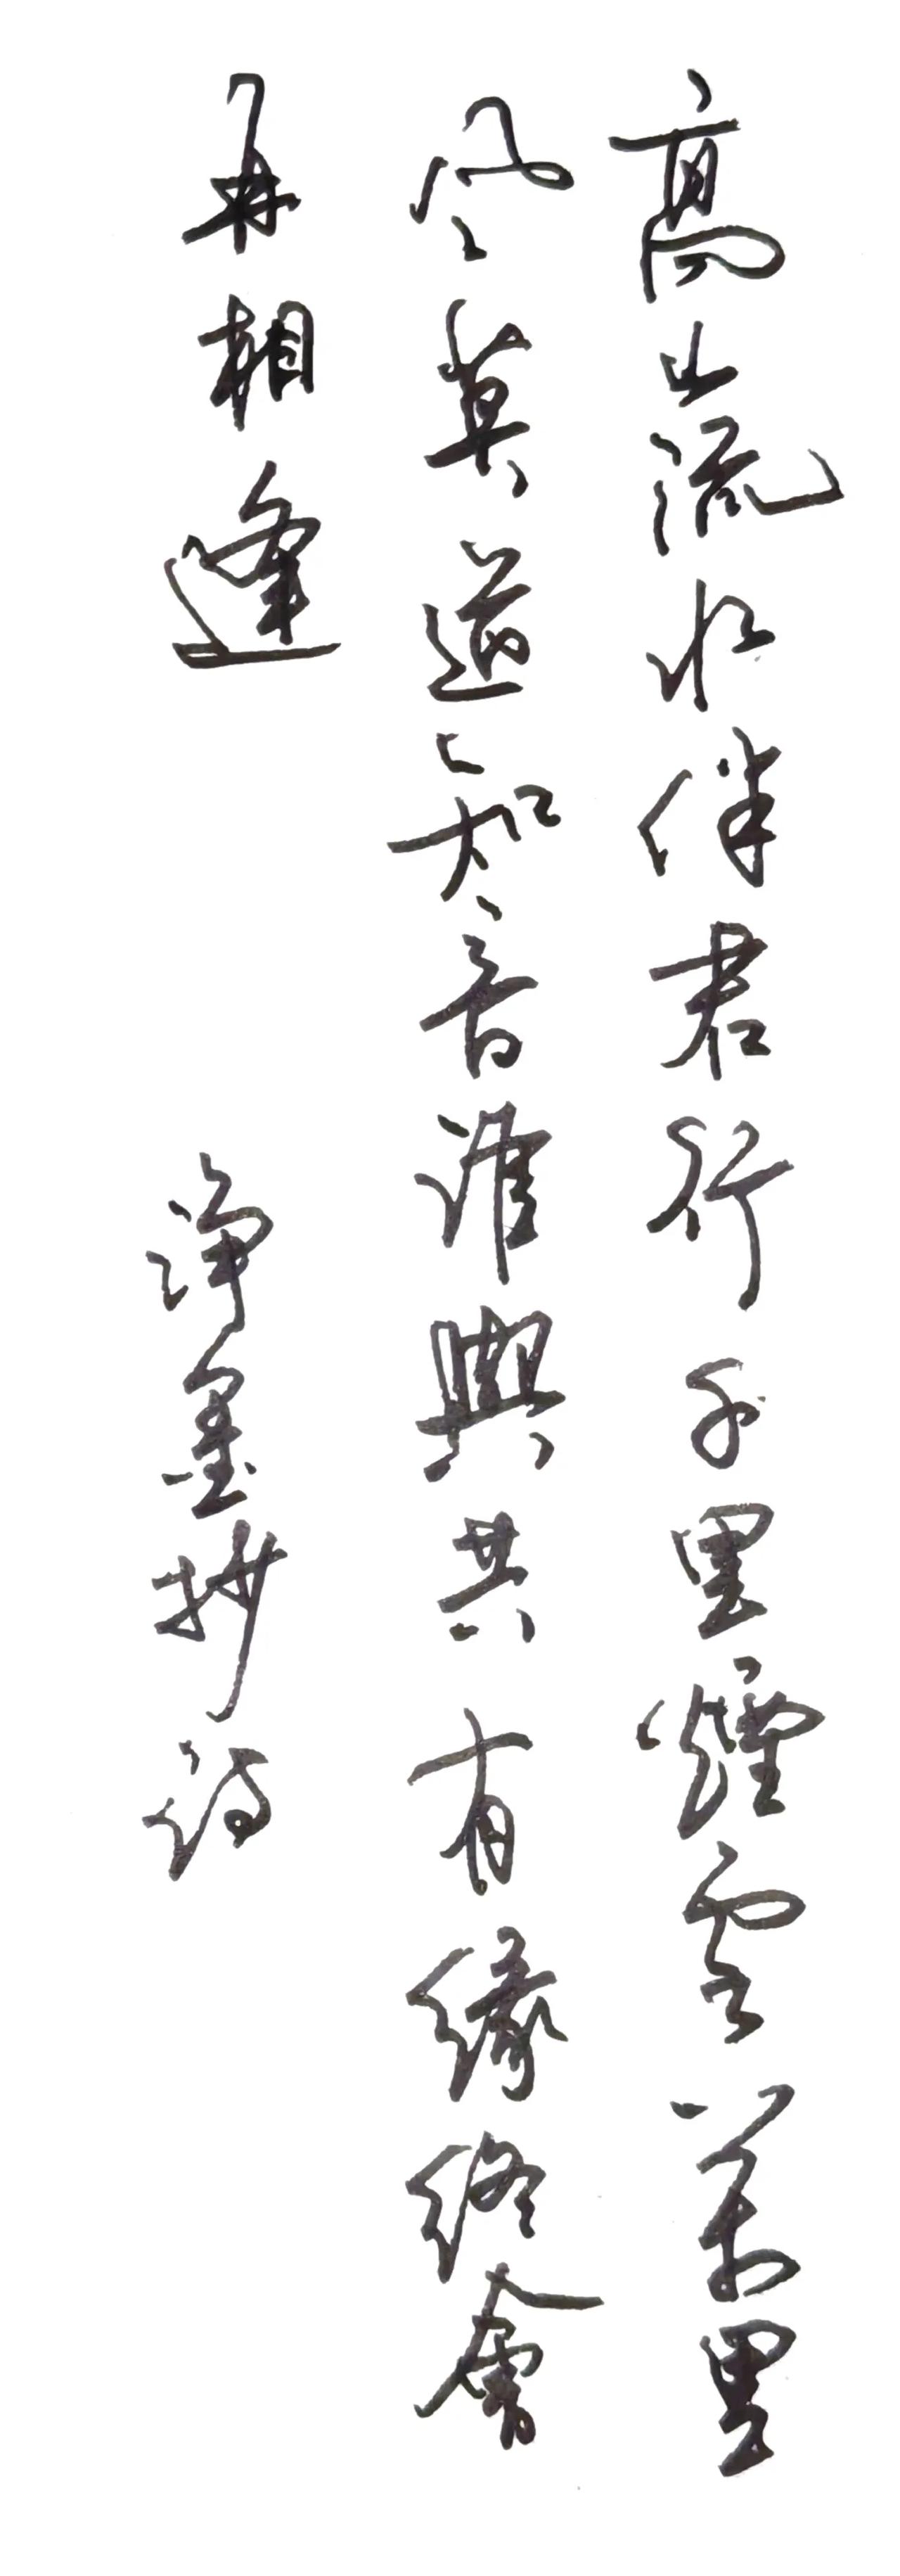 高山流水伴君行千里煙雲萬里
風莫道知音誰與共有緣終會
再相逢
淨墨抄詩